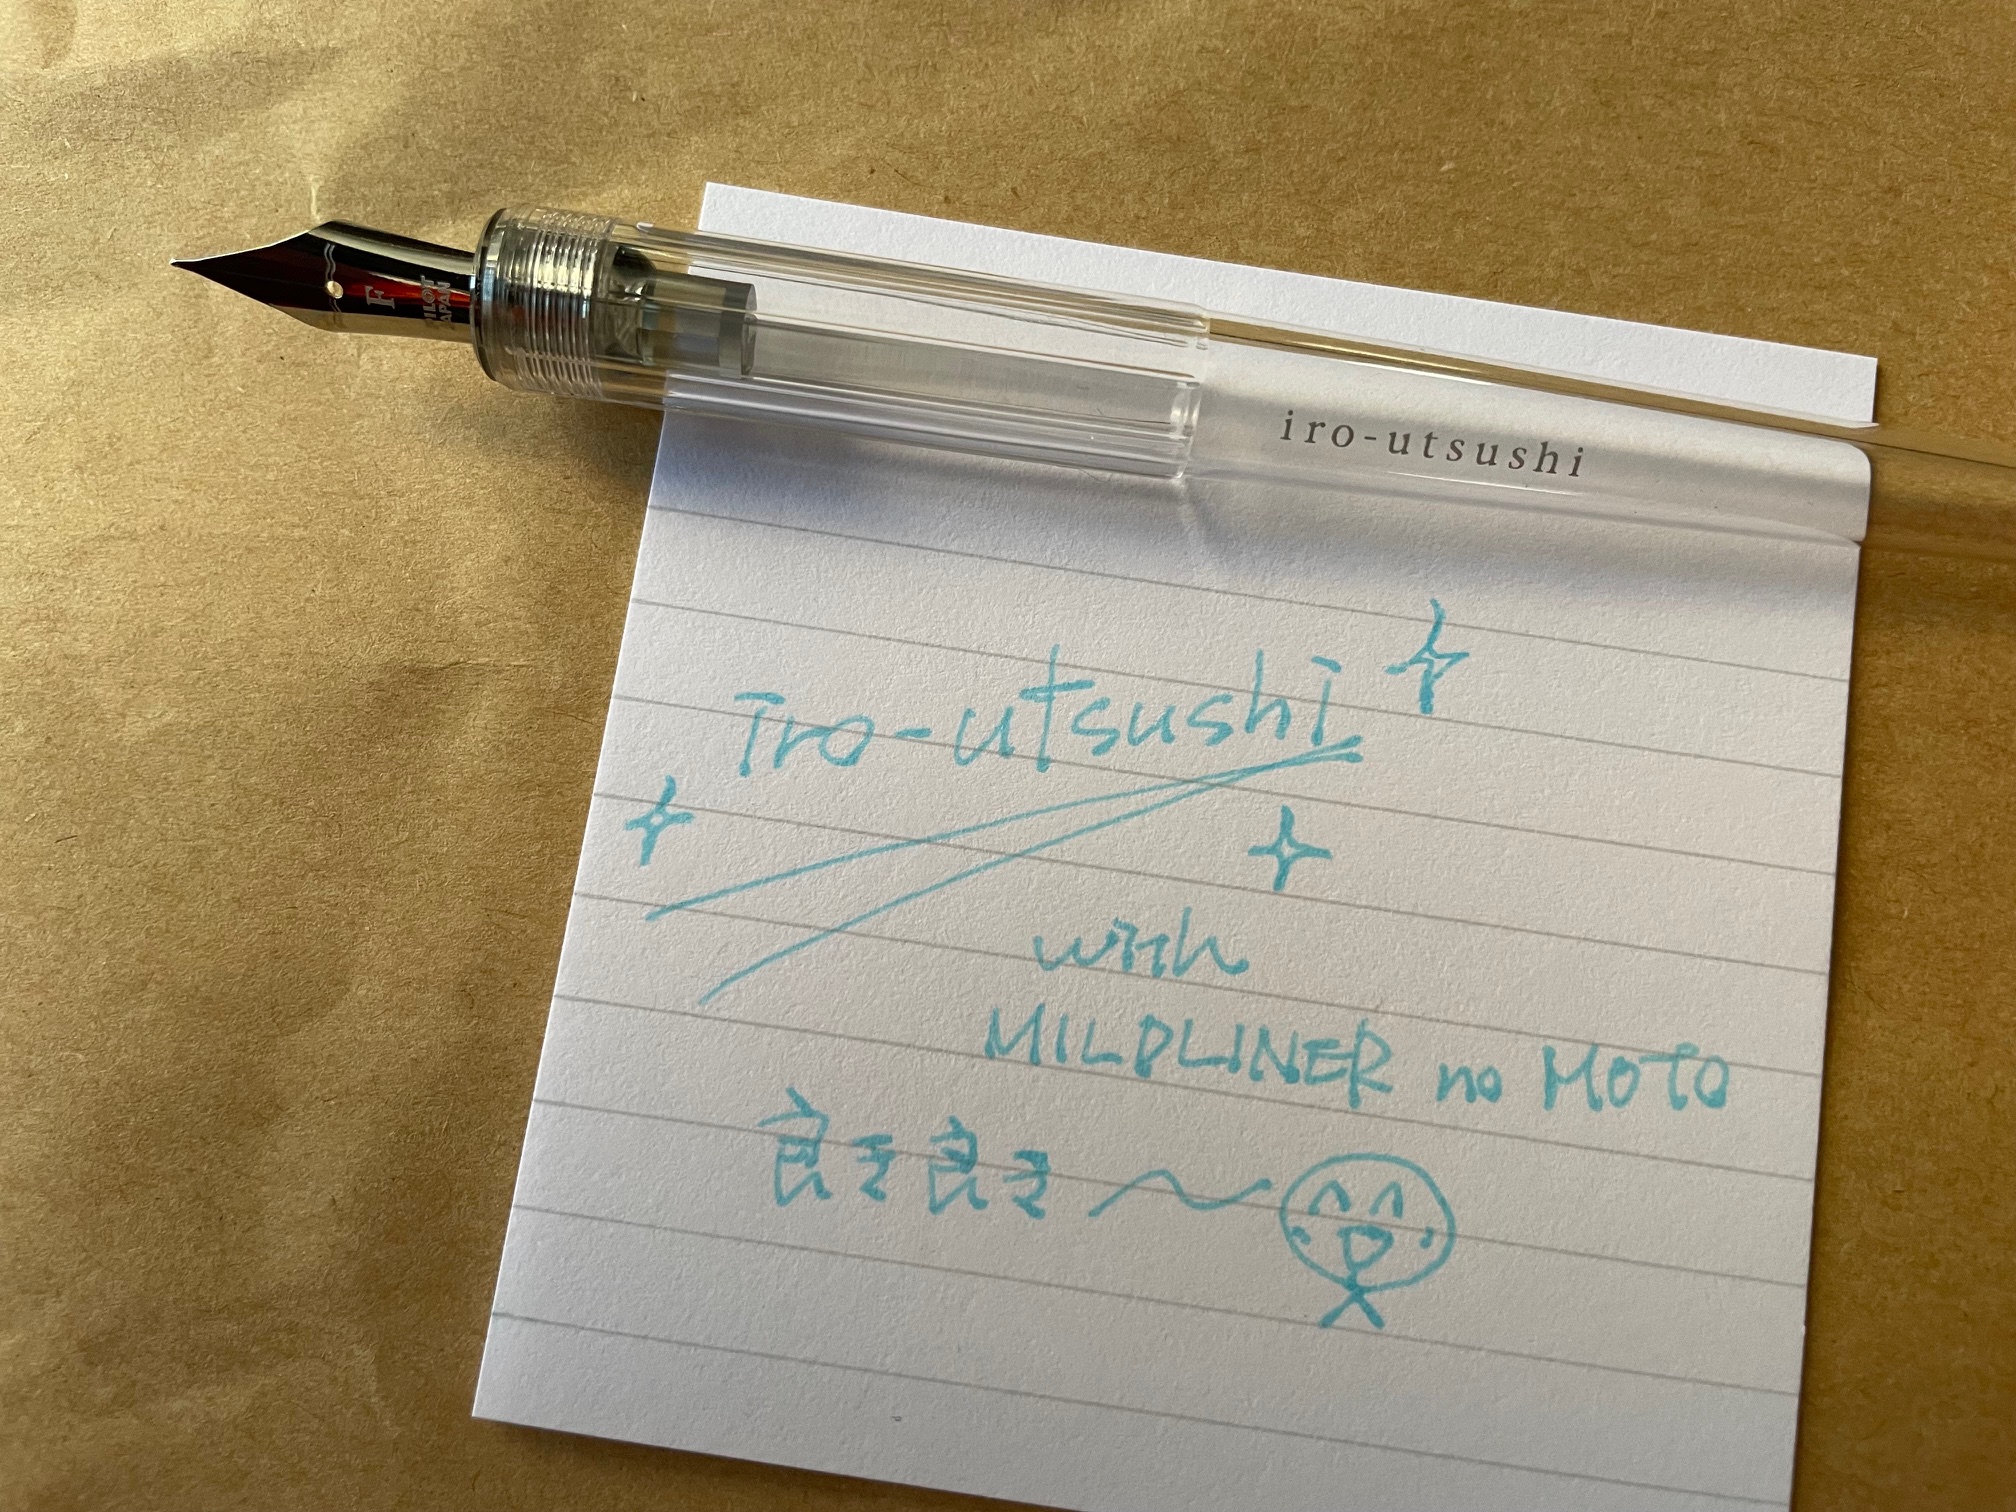 F
PILOT
JAPAN
iro-utsushi
iro-utsushi
with
MILDLINER no MOTO
良き良き〜